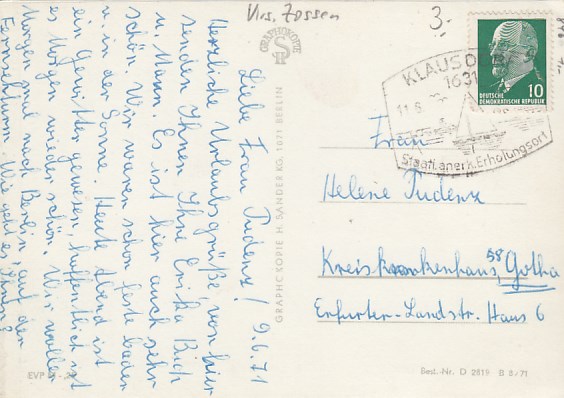 Krs. Zossen
3.-
Liebe Frau Pudenz! 9.6.71
Herzliche Urlaubsgrüße von hier
senden Ihnen Ihre Erika
u. Mann Es ist hier auch sehr
schön. Wir waren schon feste baden
in der Sonne. Heute Abend ist
ein Gewitter gewesen, hoffentlich ist
es Morgen wieder schön. Wir wollen
Morgen mal nach Berlin, auf den
Fernsehturm. Wie geht es Ihnen?
EVP
GRAPHOKOPIE
H S
GRAPHOKOPIE H. SANDER KG, 1071 BERLIN
KLAUSDORF
1631
11.6.
Staatl. anerk. Erholungsort
10
DEUTSCHE
DEMOKRATISCHE REPUBLIK
Frau
Helene Pudenz
Kreiskrankenhaus, 58 Gotha
Erfurter-Landstr. Haus 6
Best.-Nr. D 2619 B 5/71